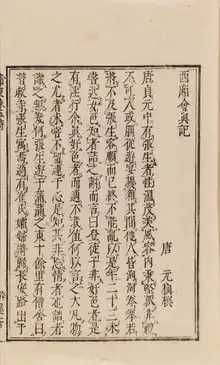 西廂會真記
唐 元稹撰
唐貞元中有張生者性溫茂美風容內秉堅孤非禮
不可入或朋從游宴擾雜其間他人皆洶洶拳拳若
將不及張生容順而已終不能亂以是年二十三未
嘗近女色知者詰之謝而言曰登徒子非好色者是
有淫行余真好色者而適不我值何以言之大凡物
之尤者未嘗不留連於心是知其非忘情者也詰者
識之無幾何張生遊于蒲蒲之東十餘里有僧舍曰
普救寺張生寓焉適有崔氏孀婦將歸長安路出于